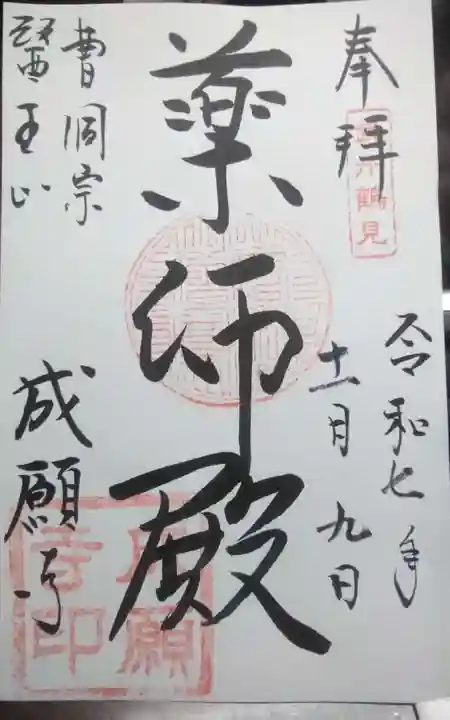 奉拝
鶴見
令和七年
十一月九日
薬師殿
曹洞宗
醫王山
成願寺
願
寺印